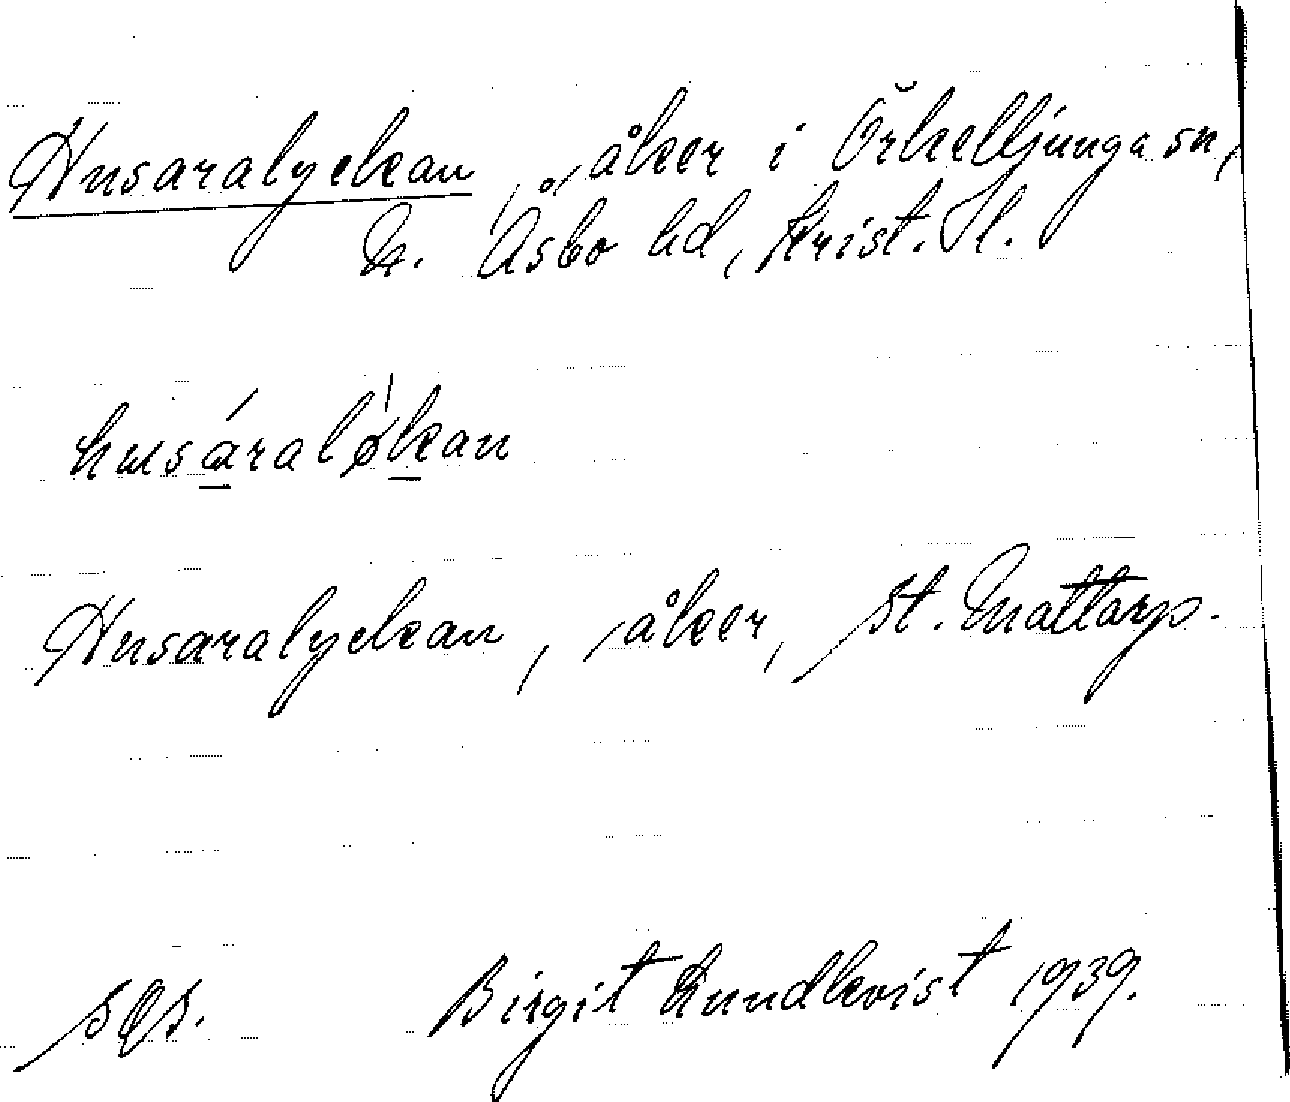 Husaralyckan, åker i Örkelljunga sn,
N. Åsbo hd, Krist. l.
husáraløkan
Husaralyckan, åker, St. Mattarp.
SOS. Birgit Lundkvist 1939.